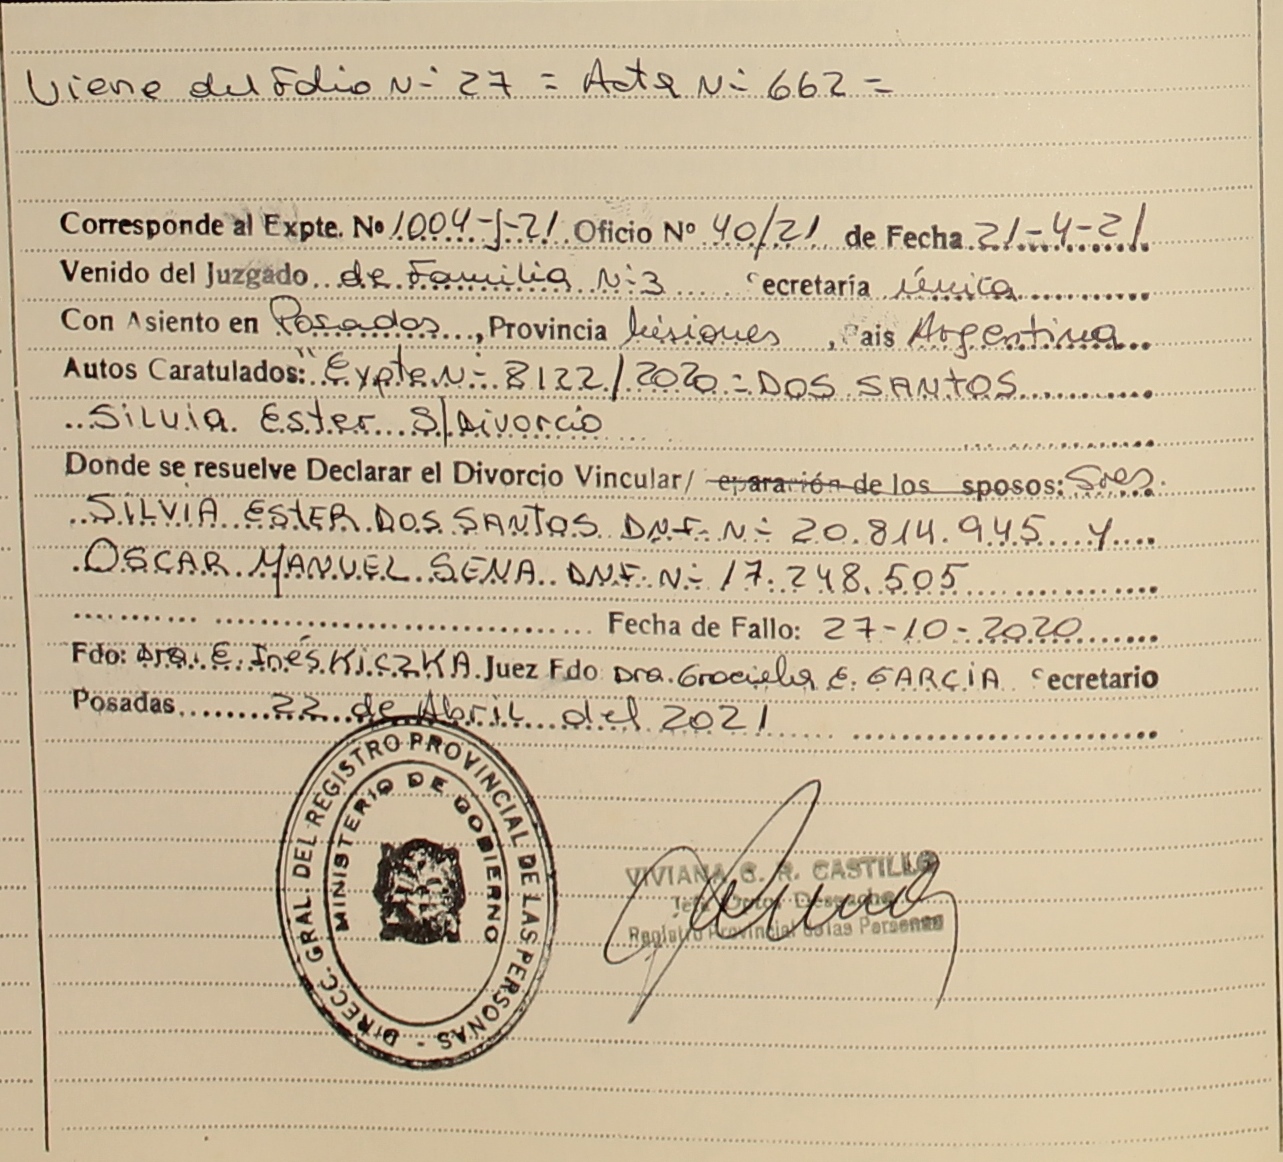 Viene del Folio N- 27 = Acta N- 662 =
Corresponde al Expte. Nº 1004-J-21 Oficio Nº 40/21 de Fecha 21-4-21
Venido del Juzgado de Familia N-3 ecretaría única
Con Asiento en Posadas, Provincia Misiones, Pais Argentina
Autos Caratulados: "Expte N- 8122/2020 = DOS SANTOS
Silvia Ester S/Divorcio
Donde se resuelve Declarar el Divorcio Vincular/ eparación de los sposos: Sres
SILVIA ESTER DOS SANTOS DNI. N- 20.814.945 y
OSCAR MANUEL SENA DNI. N- 17.248.505
Fecha de Fallo: 27-10-2020
Fdo: Dra. E. Inés KICZKA Juez Fdo Dra. Graciela E. GARCIA ecretario
Posadas 22 de Abril del 2021
DIRECC. GRAL. DEL REGISTRO PROVINCIAL DE LAS PERSONAS -
MINISTERIO DE GOBIERNO
VIVIANA G. R. CASTILLO
Jefe Dpto. Despacho
Registro Provincial de las Personas